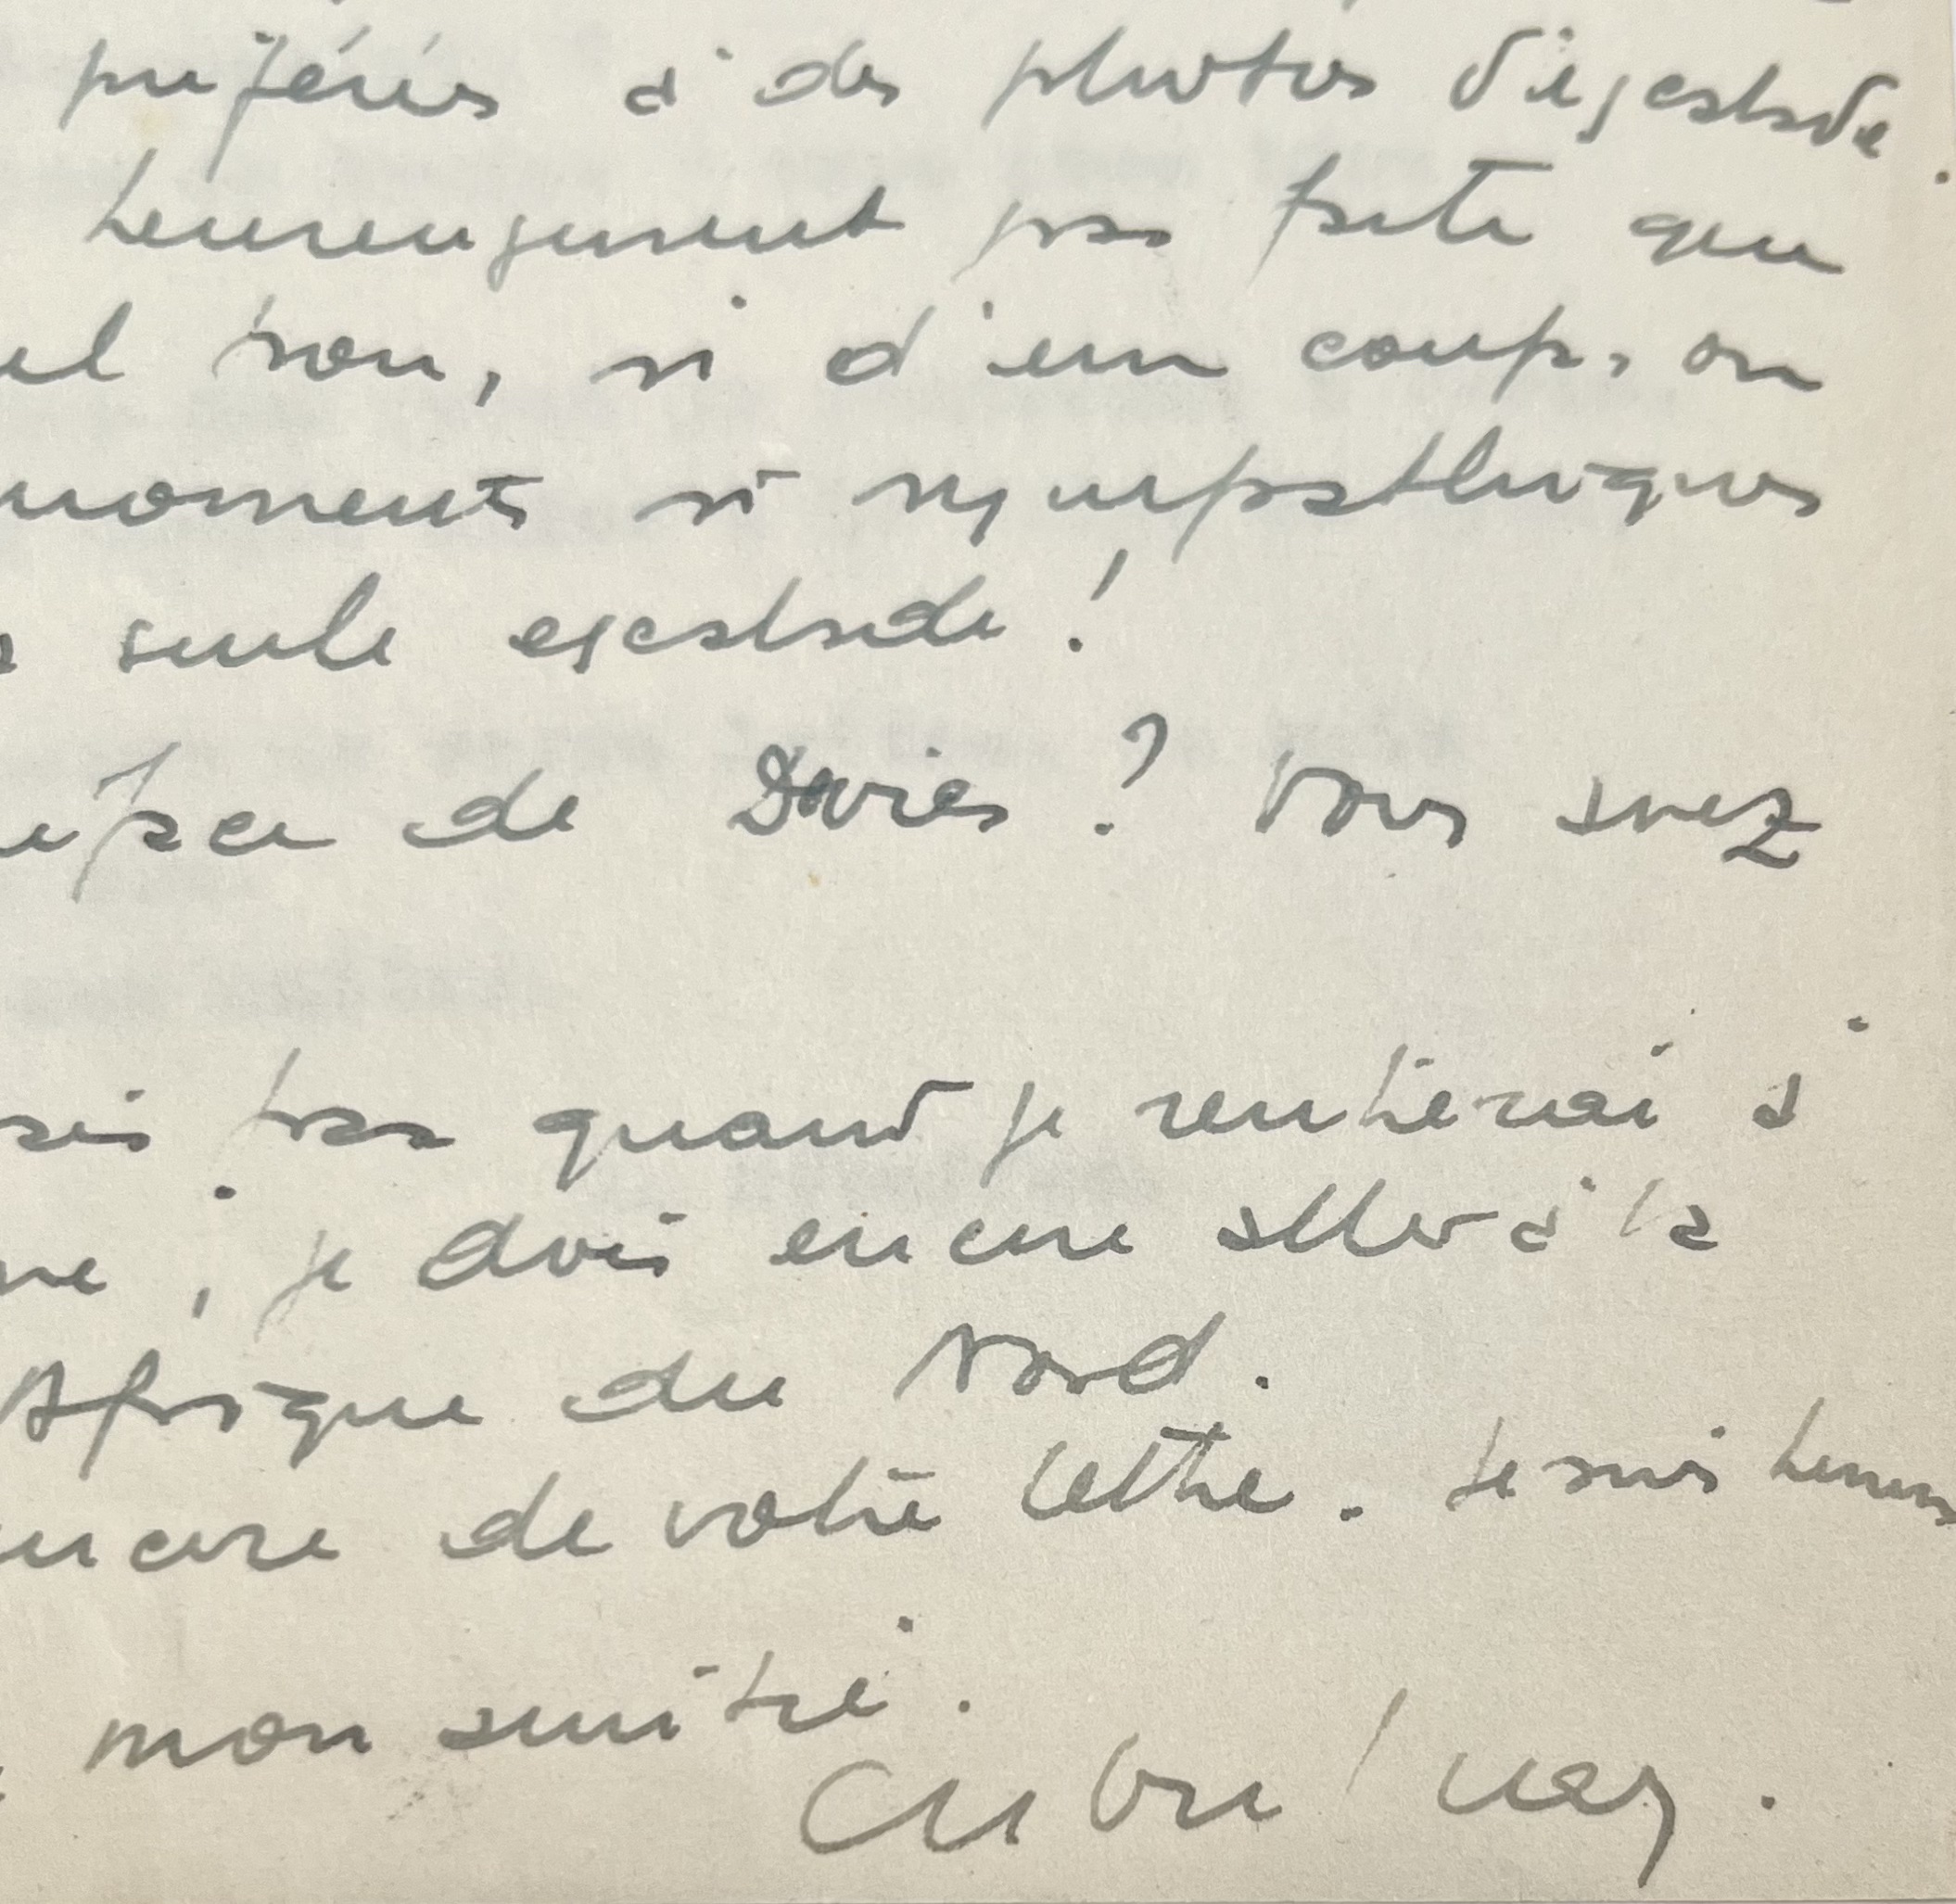 préférés à des photos d'escalade.
heureusement pas faite que
el non, si d'un coup, on
moments si sympathiques
seule escalade !
de Davies ? Vous avez
sais pas quand je rentrerai à
, je dois encore aller à la
Afrique du Nord.
encore de votre lettre. Je suis heureux
mon amitié.